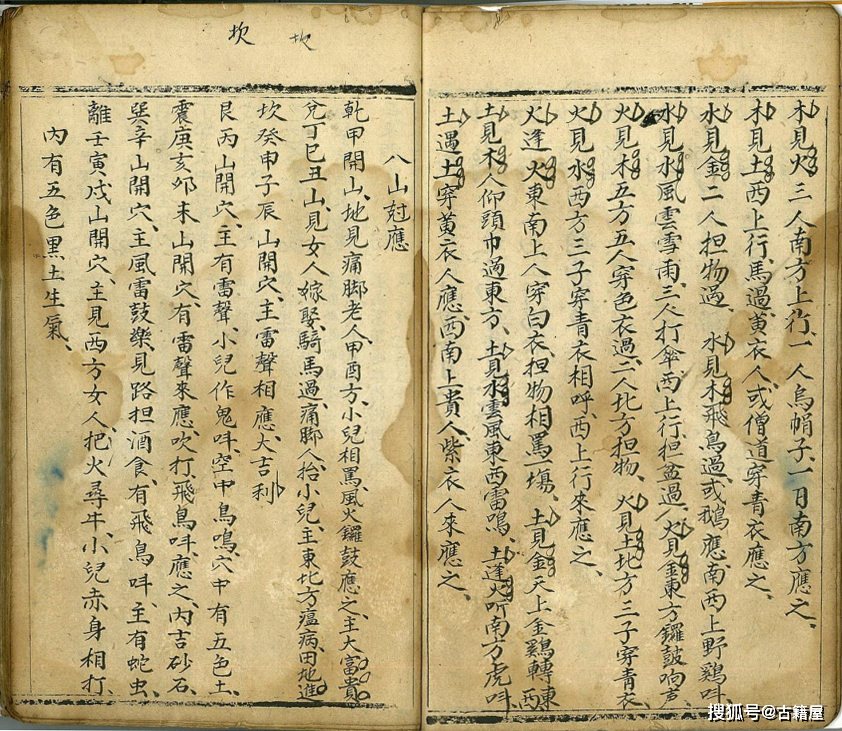 木見火三人南方上行、一人烏帽子、一日南方應之、
木見土西上行、馬過、黄衣人、或僧道穿青衣應之、
水見金二人担物過、水見木飛鳥過、或鵝應南西上野鷄呌、
水見水風雲雪雨、三人打傘西上行、担盆過、火見金東方鑼鼓响声、
火見木五方五人穿色衣過、二人北方担物、火見土北方三子穿青衣、
火見水西方三子穿青衣相呼、西上行來應之、
火逢火東南上人穿白衣、担物相罵一塲、土見金天上金鷄轉東西
土見木人仰頭巾過東方、土見水雲風東西雷鳴、土逢火听南方虎呌、
土遇土穿黄衣人應、西南上貴人、紫衣人來應之、
坎 坎
八山尅應
乾甲開山、地見痛脚老人、甲酉方、小兒相罵、風火鑼鼓應之、主大富貴
兌丁巳丑山、見女人嫁娶、騎馬過、痛脚人、抬小兒、主東北方瘟病、田地進
坎癸申子辰山開穴、主雷聲相應、大吉利
艮丙山開穴、主有雷聲、小兒作鬼呌、空中鳥鳴、穴中有五色土、
震庚亥卯未山開穴、有雷聲來應、吹打、飛鳥呌應之、內吉砂石、
巽辛山開穴、主風雷鼓樂、見路担酒食、有飛鳥呌、主有蛇虫、
離壬寅戍山開穴、主見西方女人、把火尋牛、小兒赤身相打、
內有五色黑土生氣、
搜狐号@古籍屋